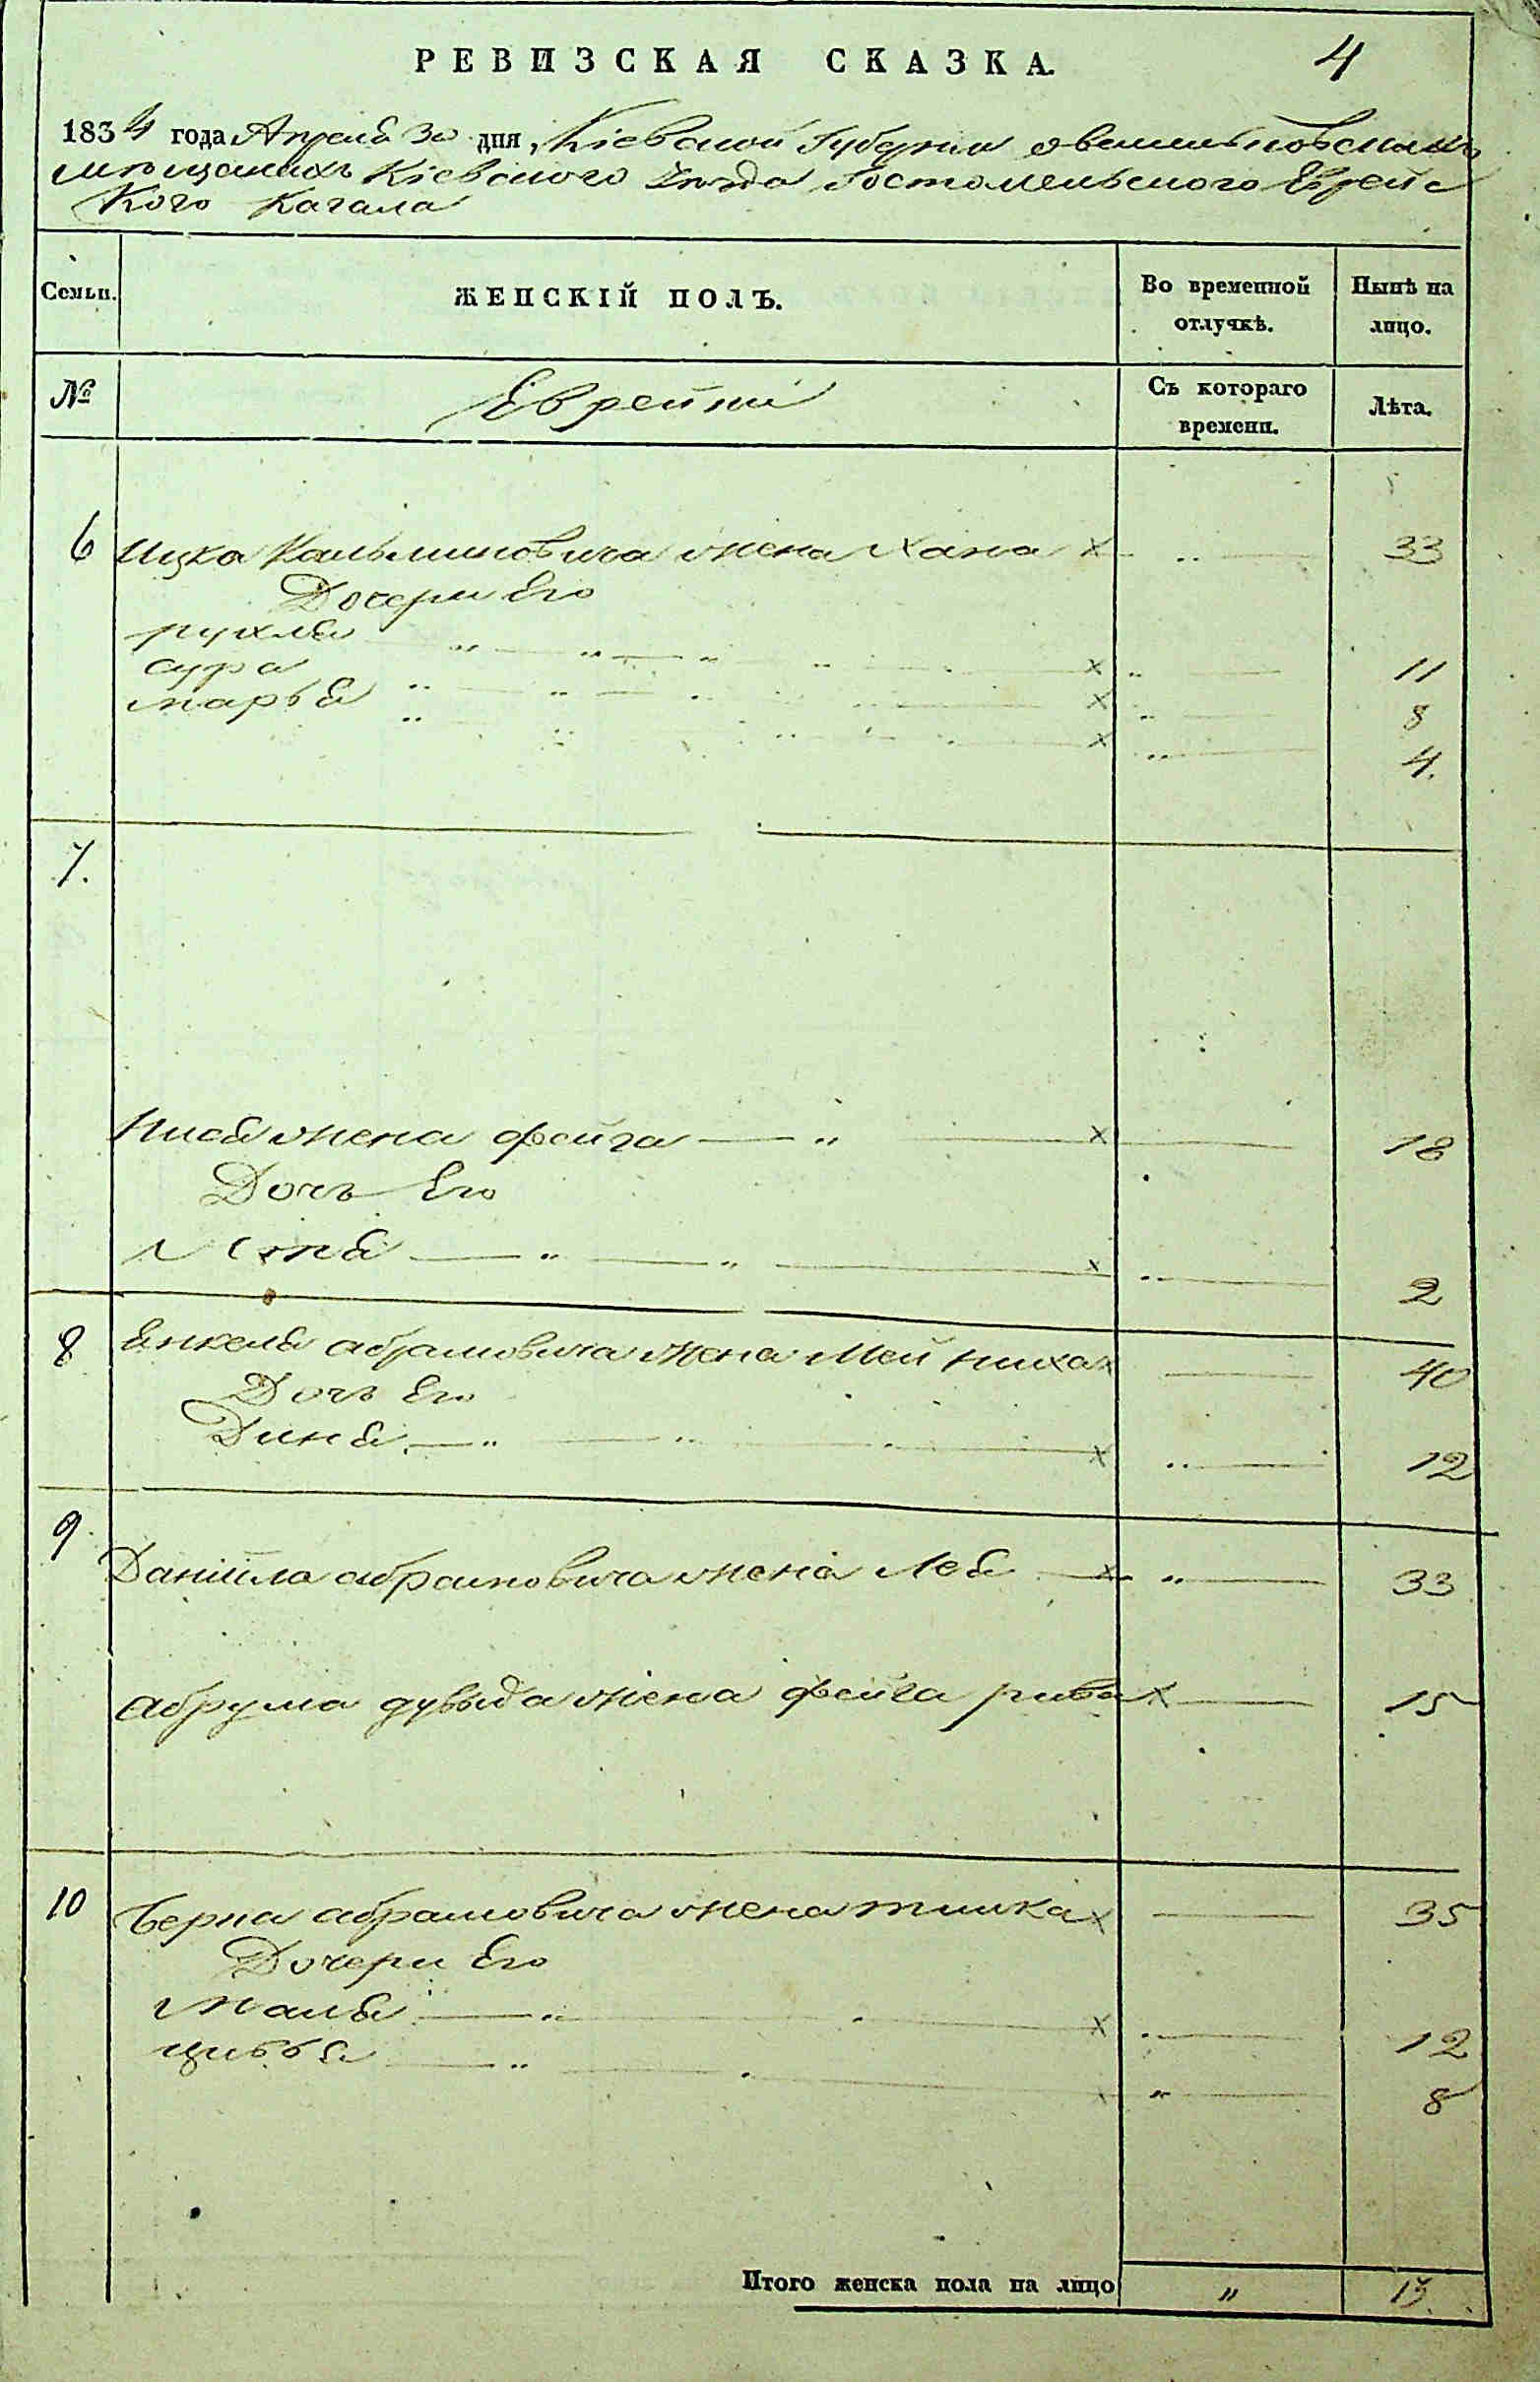 РЕВИЗСКАЯ СКАЗКА.
4
1834 года Апреля 30 дня, Кіевской Губерніи о
мѣщанахъ Кіевского Уезда Гостомельского Еврейс
кого Кагала
Семьи.
ЖЕНСКІЙ ПОЛЪ.
Во временной отлучкѣ.
Нынѣ на лицо.
№
Еврейки
Съ котораго времени.
Лѣта.
6 Ицка Кальмановича жена Хана x 33
Дочери Его
рухля x 11
сура x 8
марья x 4.
7.
жена фейга x 18
Дочь Его
x 2
8 Янкеля абрамовича жена x 40
Дочь Его
Диня x 12
9 Даніила абрамовича жена Лея x 33
абрума дувыда жена фейга рива x 15
10 Берка абрамовича жена x 35
Дочери Его
Маля x 12
цивья x 8
Итого женска пола на лицо " 13